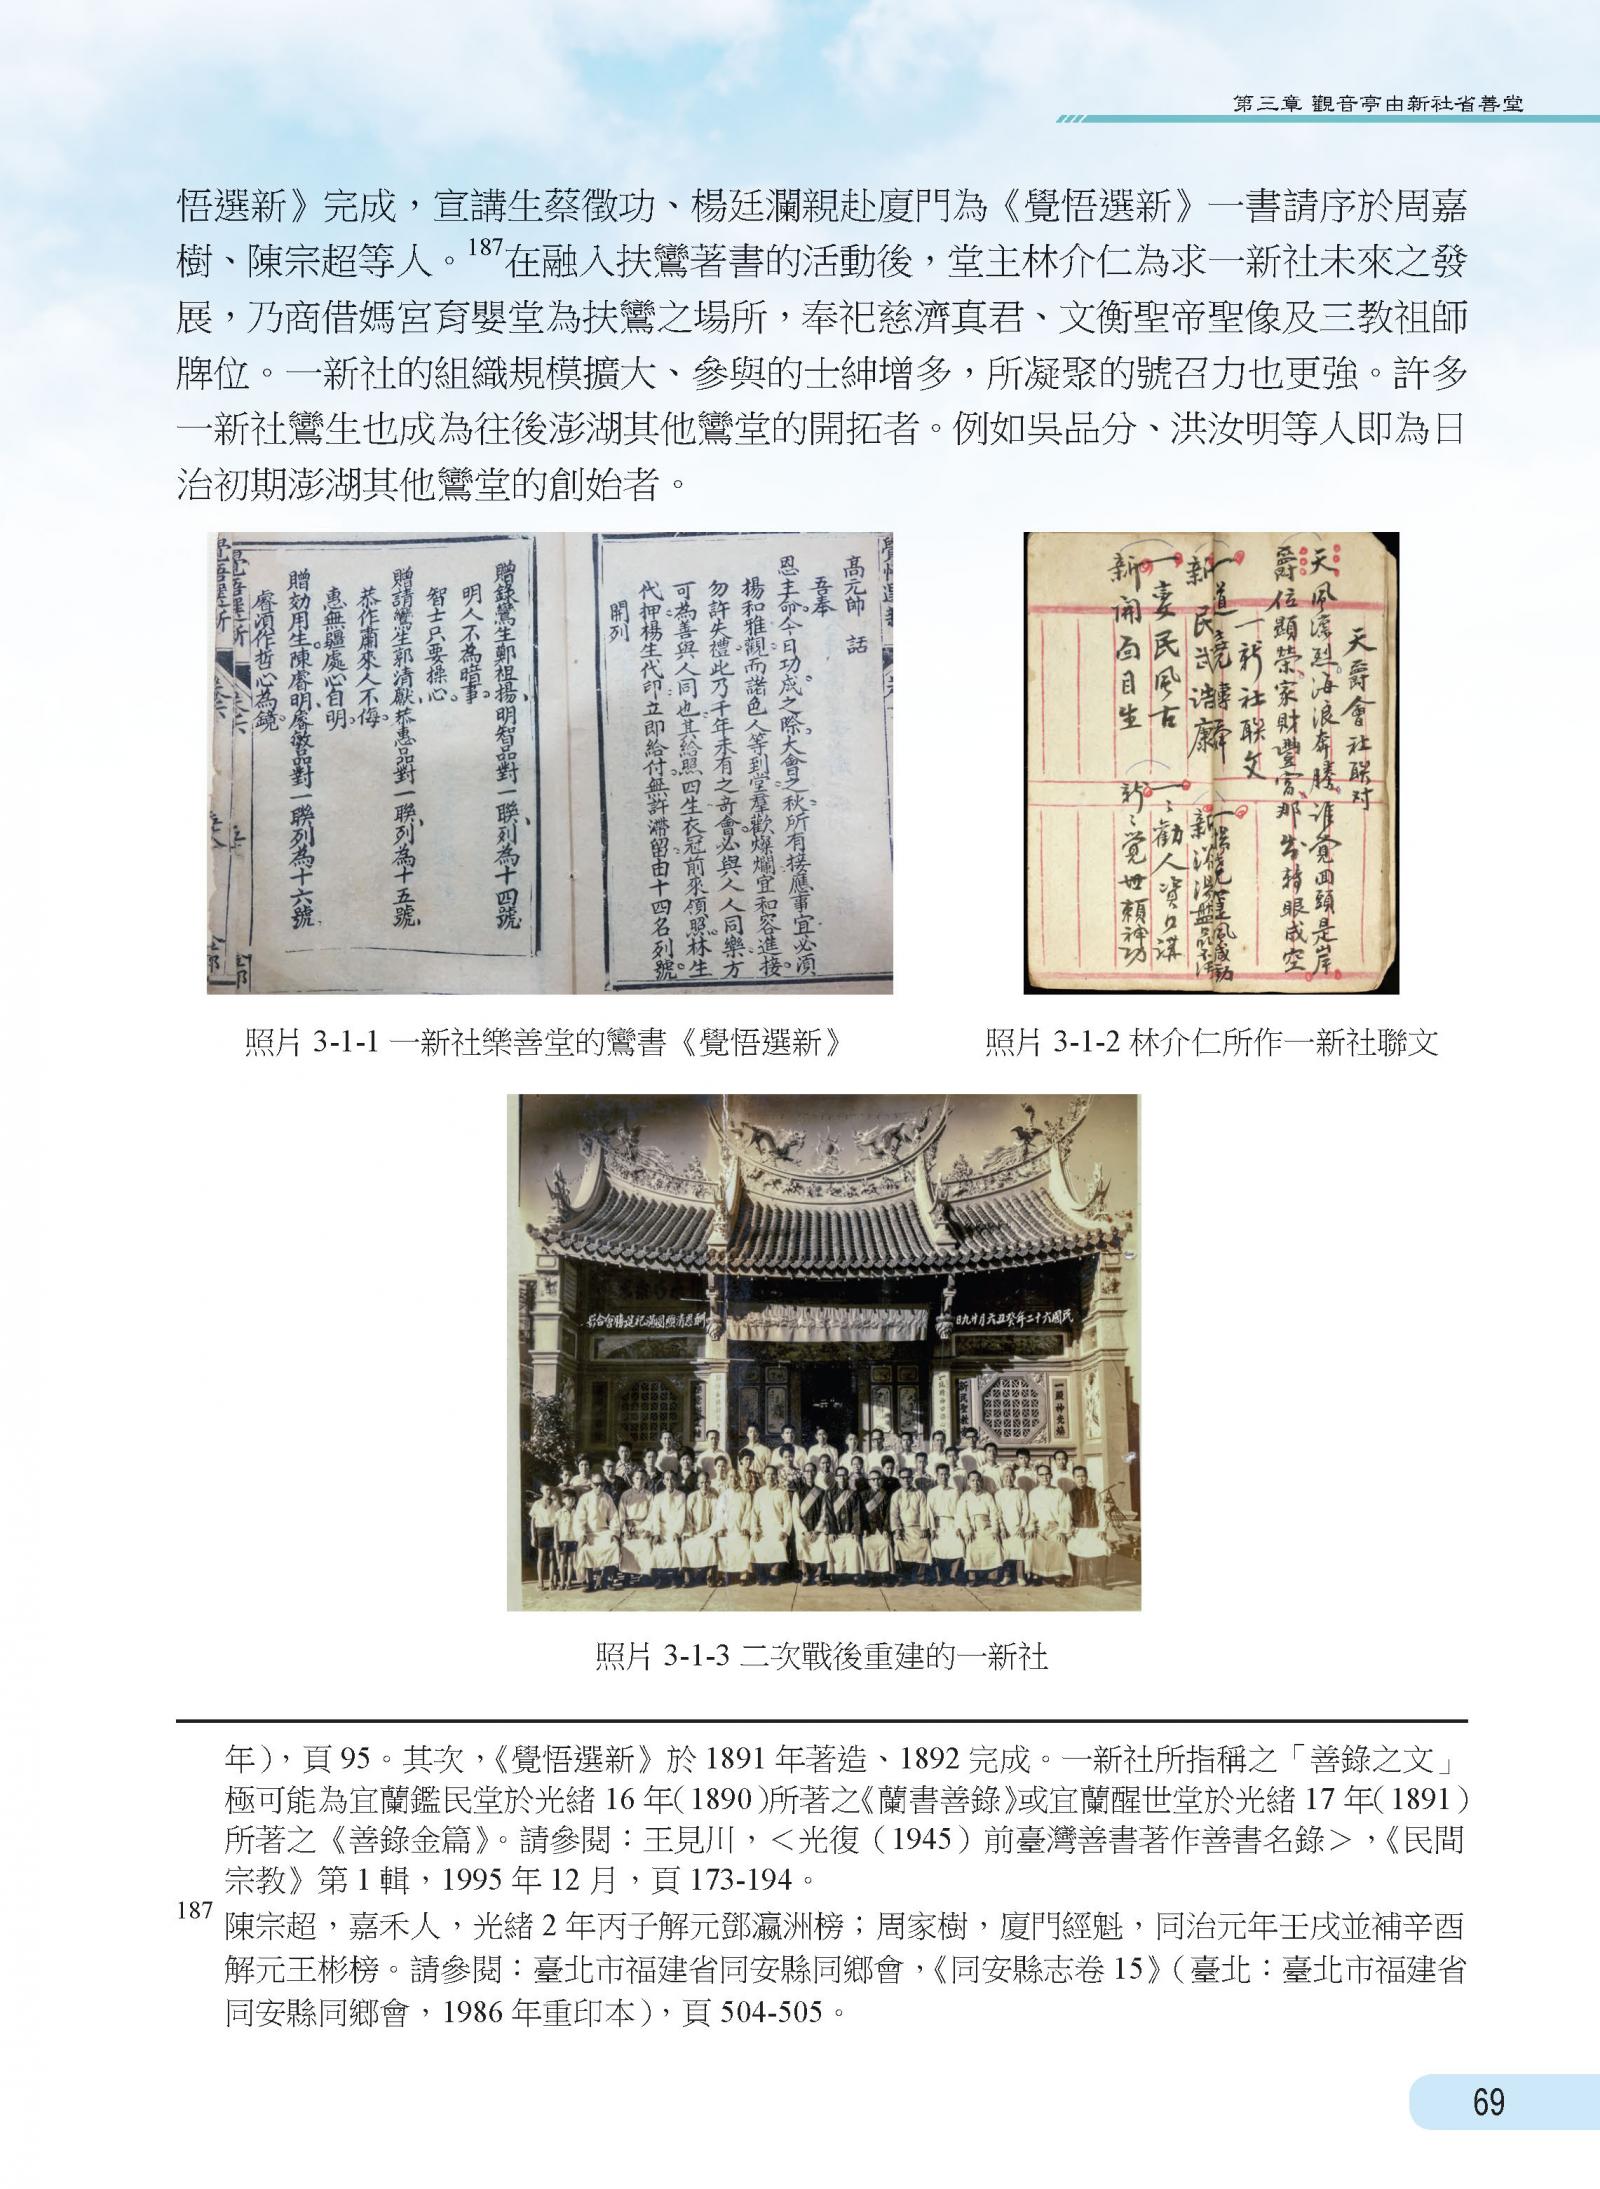 第三章 觀音亭由新社省善堂
悟選新》完成，宣講生蔡徵功、楊廷瀾親赴廈門為《覺悟選新》一書請序於周嘉
樹、陳宗超等人。187在融入扶鸞著書的活動後，堂主林介仁為求一新社未來之發
展，乃商借媽宮育嬰堂為扶鸞之場所，奉祀慈濟真君、文衡聖帝聖像及三教祖師
牌位。一新社的組織規模擴大、參與的士紳增多，所凝聚的號召力也更強。許多
一新社鸞生也成為往後澎湖其他鸞堂的開拓者。例如吳品分、洪汝明等人即為日
治初期澎湖其他鸞堂的創始者。
高元帥 話
吾奉
恩主命。今日功成之際。大會之秋。所有接應事宜。必須
揚和雅觀。而諸色人等到堂。羣歡燦爛。宜和容進接。
勿許失禮。此乃千年未有之奇會。必與人人同樂。方
可為善與人同也。其給照四生。衣冠前來領照。林生
代押。楊生代印。立即給付。無許滯留。由十四名列號。
開列
贈錄鸞生鄭祖揚明智品對一聯。列為十四號。
明人不為暗事。
智士只要操心。
贈請鸞生郭清獻恭惠品對一聯。列為十五號。
恭作肅來人不侮。
惠無疆處心自明。
贈効用生陳睿明睿哲品對一聯。列為十六號。
睿須作哲心為鏡。
天爵會社联对
天風凜烈海浪奔騰誰覚回頭是岸
爵位顕榮家財豐富那戈轉眼成空
一新社联文
一妻民風古
新開面目生
一ミ勸人資口講
新ミ覚世賴神功
照片 3-1-1 一新社樂善堂的鸞書《覺悟選新》
照片 3-1-2 林介仁所作一新社聯文
民國六十二年癸丑六月廿九日
一殿神光
新民聖教
照片 3-1-3 二次戰後重建的一新社
年），頁 95。其次，《覺悟選新》於 1891 年著造、1892 完成。一新社所指稱之「善錄之文」
極可能為宜蘭鑑民堂於光緒 16 年（1890）所著之《蘭書善錄》或宜蘭醒世堂於光緒 17 年（1891）
所著之《善錄金篇》。請參閱：王見川，＜光復（1945）前臺灣善書著作善書名錄＞，《民間
宗教》第 1 輯，1995 年 12 月，頁 173-194。
187 陳宗超，嘉禾人，光緒 2 年丙子解元鄧瀛洲榜；周家樹，廈門經魁，同治元年壬戌並補辛酉
解元王彬榜。請參閱：臺北市福建省同安縣同鄉會，《同安縣志卷 15》（臺北：臺北市福建省
同安縣同鄉會，1986 年重印本），頁 504-505。
69